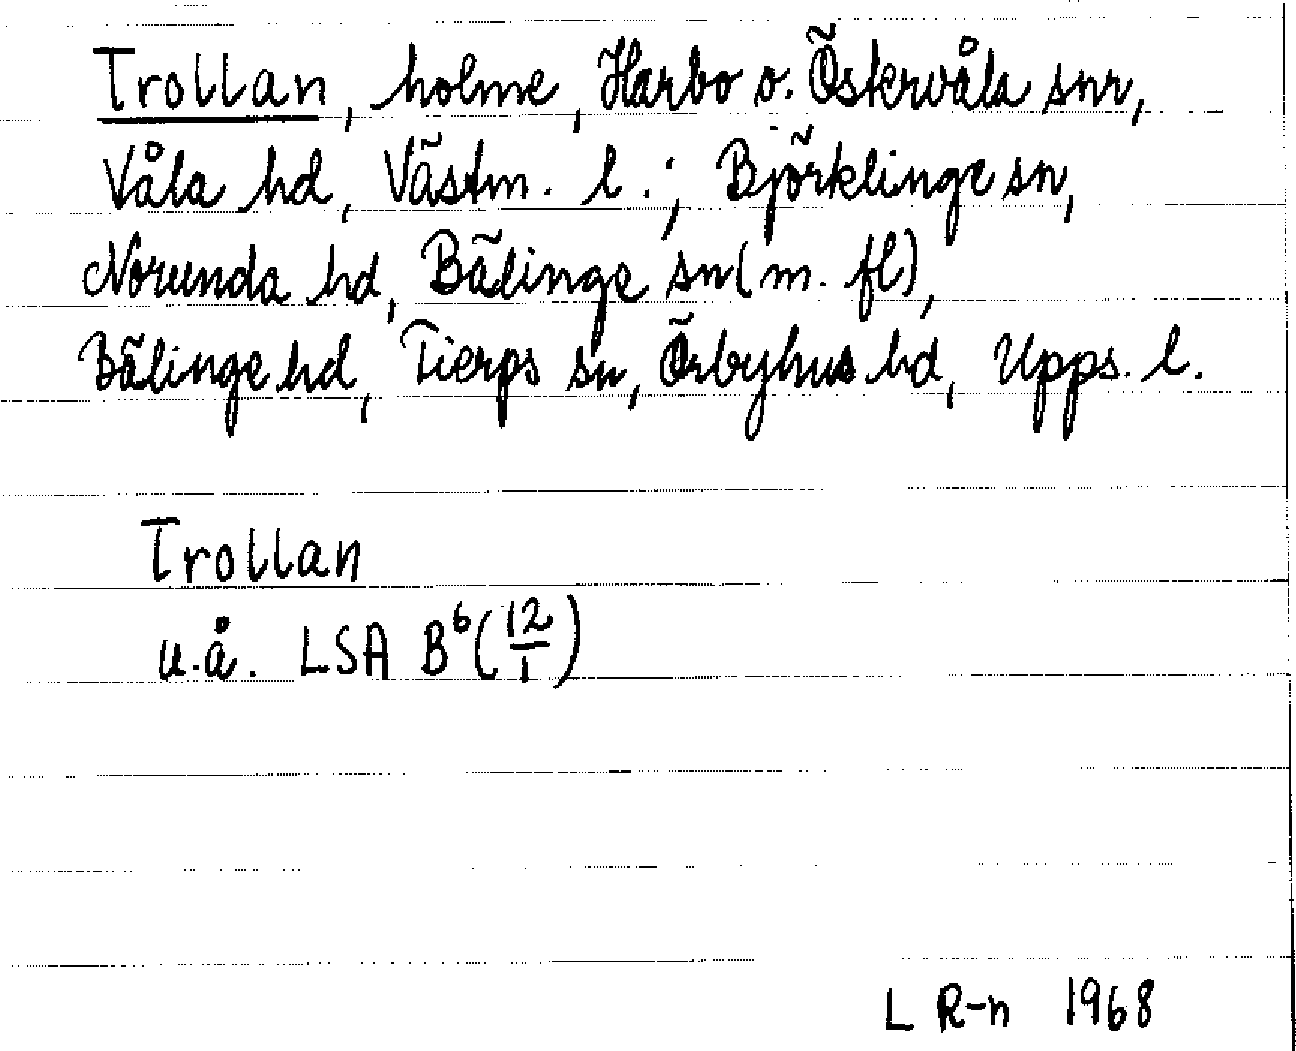 Trollan, holme, Harbo o. Östervåla snr,
Våla hd, Västm. l.; Björklinge sn,
Norunda hd, Bälinge sn (m. fl),
Bälinge hd, Tierps sn, Örbyhus hd, Upps. l.
Trollan
u.å. LSA B⁶ (12/1)
L R-n 1968